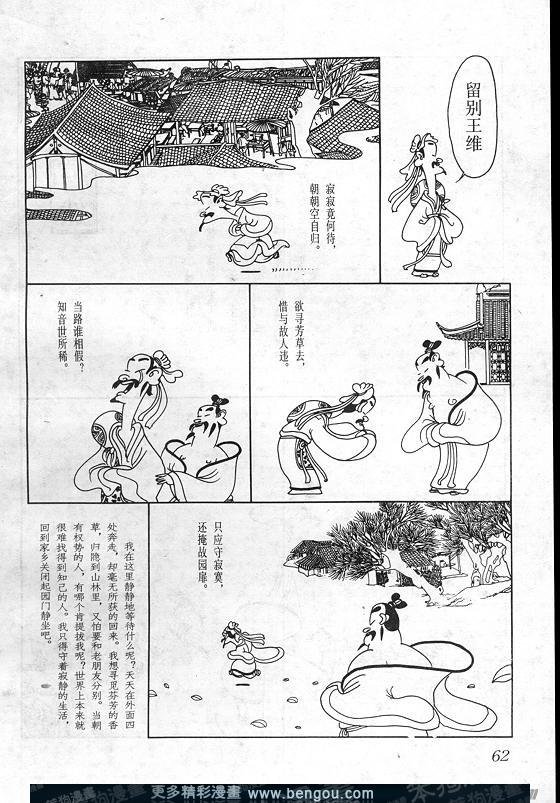 留别王维
寂寂竟何待，
朝朝空自归。
欲寻芳草去，
惜与故人违。
当路谁相假？
知音世所稀。
只应守寂寞，
还掩故园扉。
我在这里静静地等待什么呢？天天在外面四
处奔走，却毫无所获的回来。我想寻觅芬芳的香
草，归隐到山林里，又怕要和老朋友分别。当朝
有权势的人，有哪个肯提拔我呢？世界上本来就
很难找得到知己的人。我只得守着寂静的生活，
回到家乡关闭起园门静坐吧。
62
更多精彩漫畫 www.bengou.com